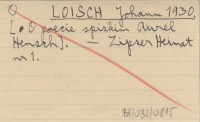 LOISCH Johann 1930.
[O poecie spiskim Aurel
Hensch]. — Zipser Heimat
nr 1.